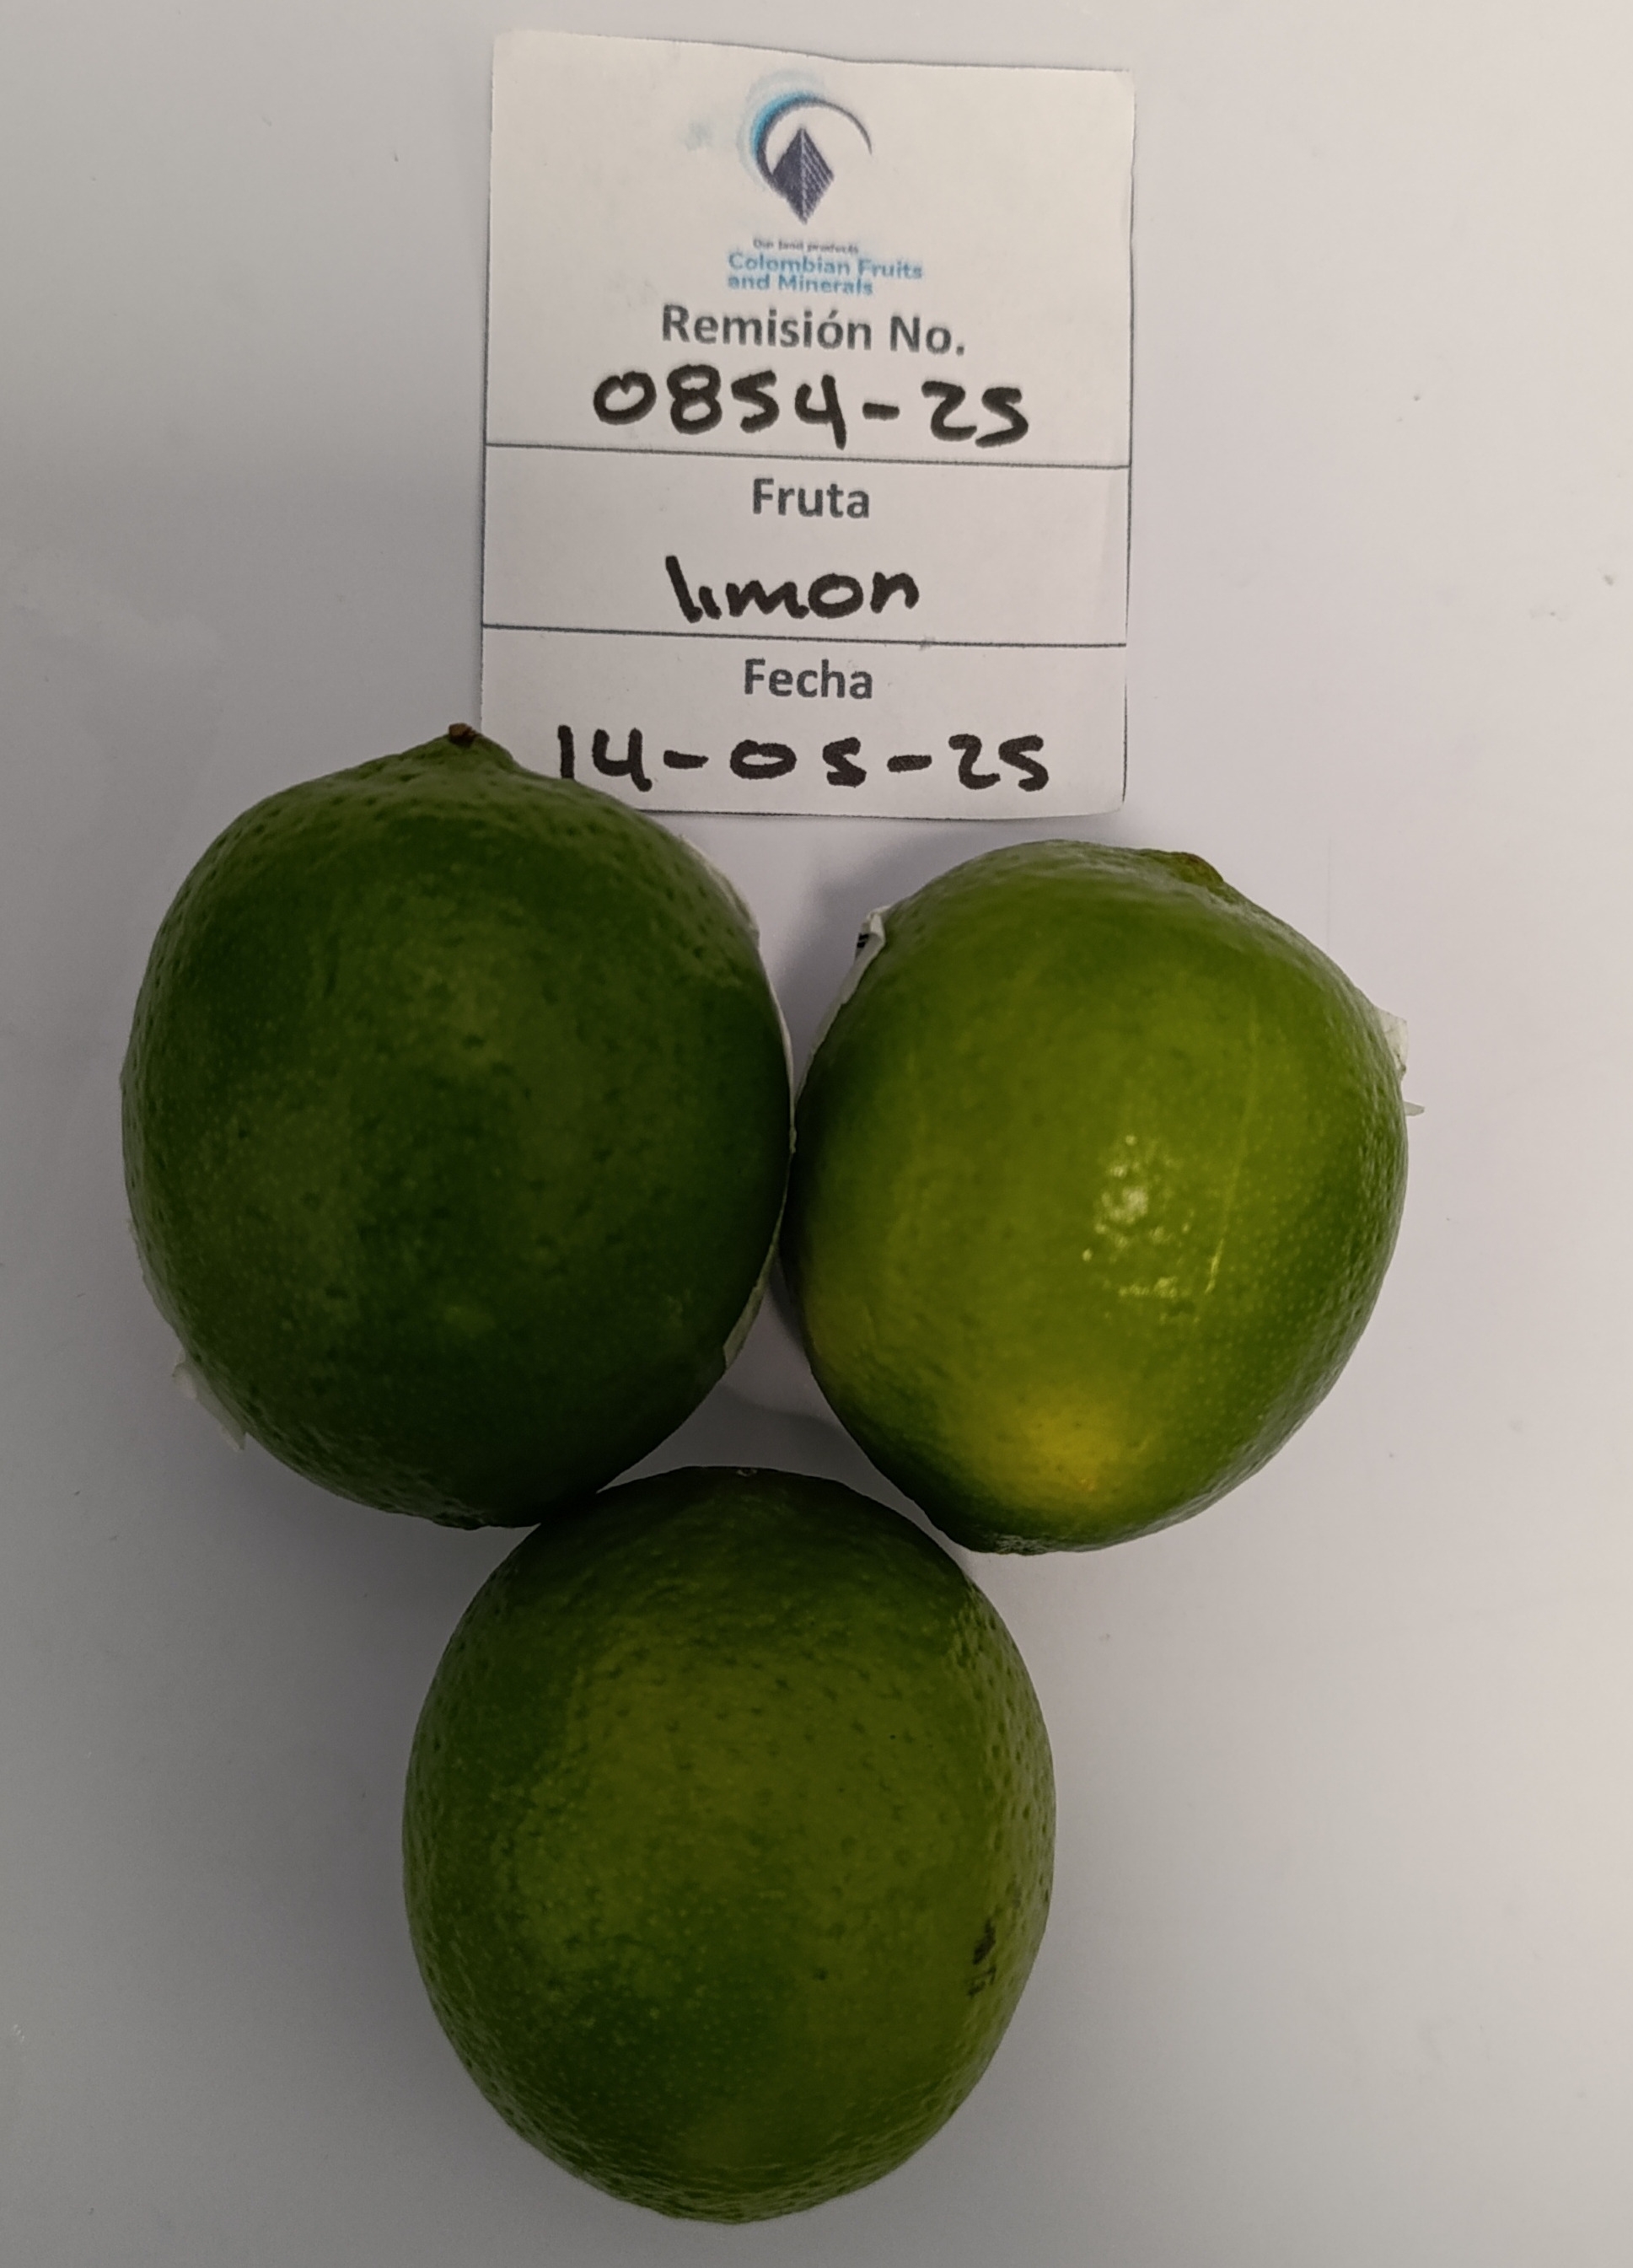 Our land products
Colombian Fruits
and Minerals
Remisión No.
0854-25
Fruta
limon
Fecha
14-05-25